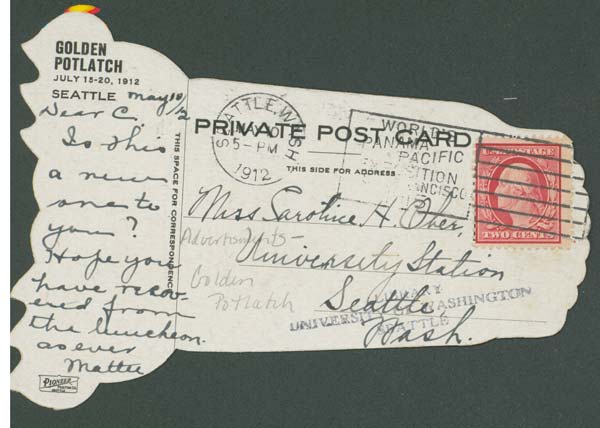 GOLDEN
POTLATCH
JULY 15-20, 1912
SEATTLE May 10/12
Dear C.
Is this
a new
one to
you?
Hope you
have recov-
ered from
the luncheon.
as ever
Mattie
PIONEER
THIS SPACE FOR CORRESPONDENCE
SEATTLE, WASH.
MAY 10
5-PM
1912
WORLD'S
PANAMA
PACIFIC
SITION
NCISCO
PRIVATE POST CARD
THIS SIDE FOR ADDRESS
U.S. POSTAGE
TWO CENTS
Miss Caroline H. Ober,
University Station
Seattle,
Wash.
Advertisments-
Golden
Potlatch
LIBRARY
UNIVERSITY WASHINGTON
SEATTLE